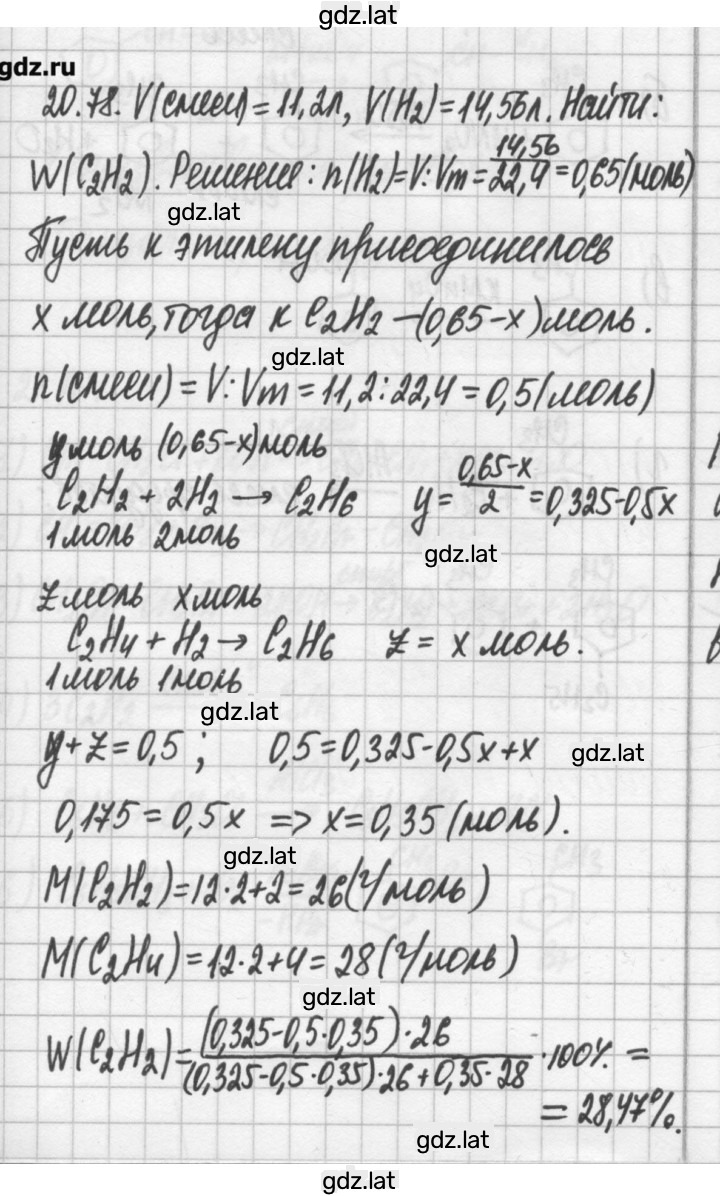 gdz.lat
gdz.ru
20.78. V(смеси)=11,2л, V(H₂)=14,56л. Найти:
W(C₂H₂). Решение: n(H₂)=V:Vm=14,56/22,4=0,65(моль)
gdz.lat
Пусть к этилену присоединилось
x моль, тогда к C₂H₂ –(0,65-x)моль.
gdz.lat
n(смеси)=V:Vm=11,2:22,4=0,5(моль)
y моль (0,65-x)моль
C₂H₂+2H₂→C₂H₆ y=(0,65-x)/2=0,325-0,5x
1моль 2моль
gdz.lat
z моль x моль
C₂H₄+H₂→C₂H₆ z=x моль.
1моль 1моль
gdz.lat
y+z=0,5; 0,5=0,325-0,5x+x
gdz.lat
0,175=0,5x => x=0,35(моль).
gdz.lat
M(C₂H₂)=12·2+2=26(г/моль)
M(C₂H₄)=12·2+4=28(г/моль)
gdz.lat
W(C₂H₂)=(0,325-0,5·0,35)·26/(0,325-0,5·0,35)·26+0,35·28·100%=
=28,47%.
gdz.lat
gdz.lat